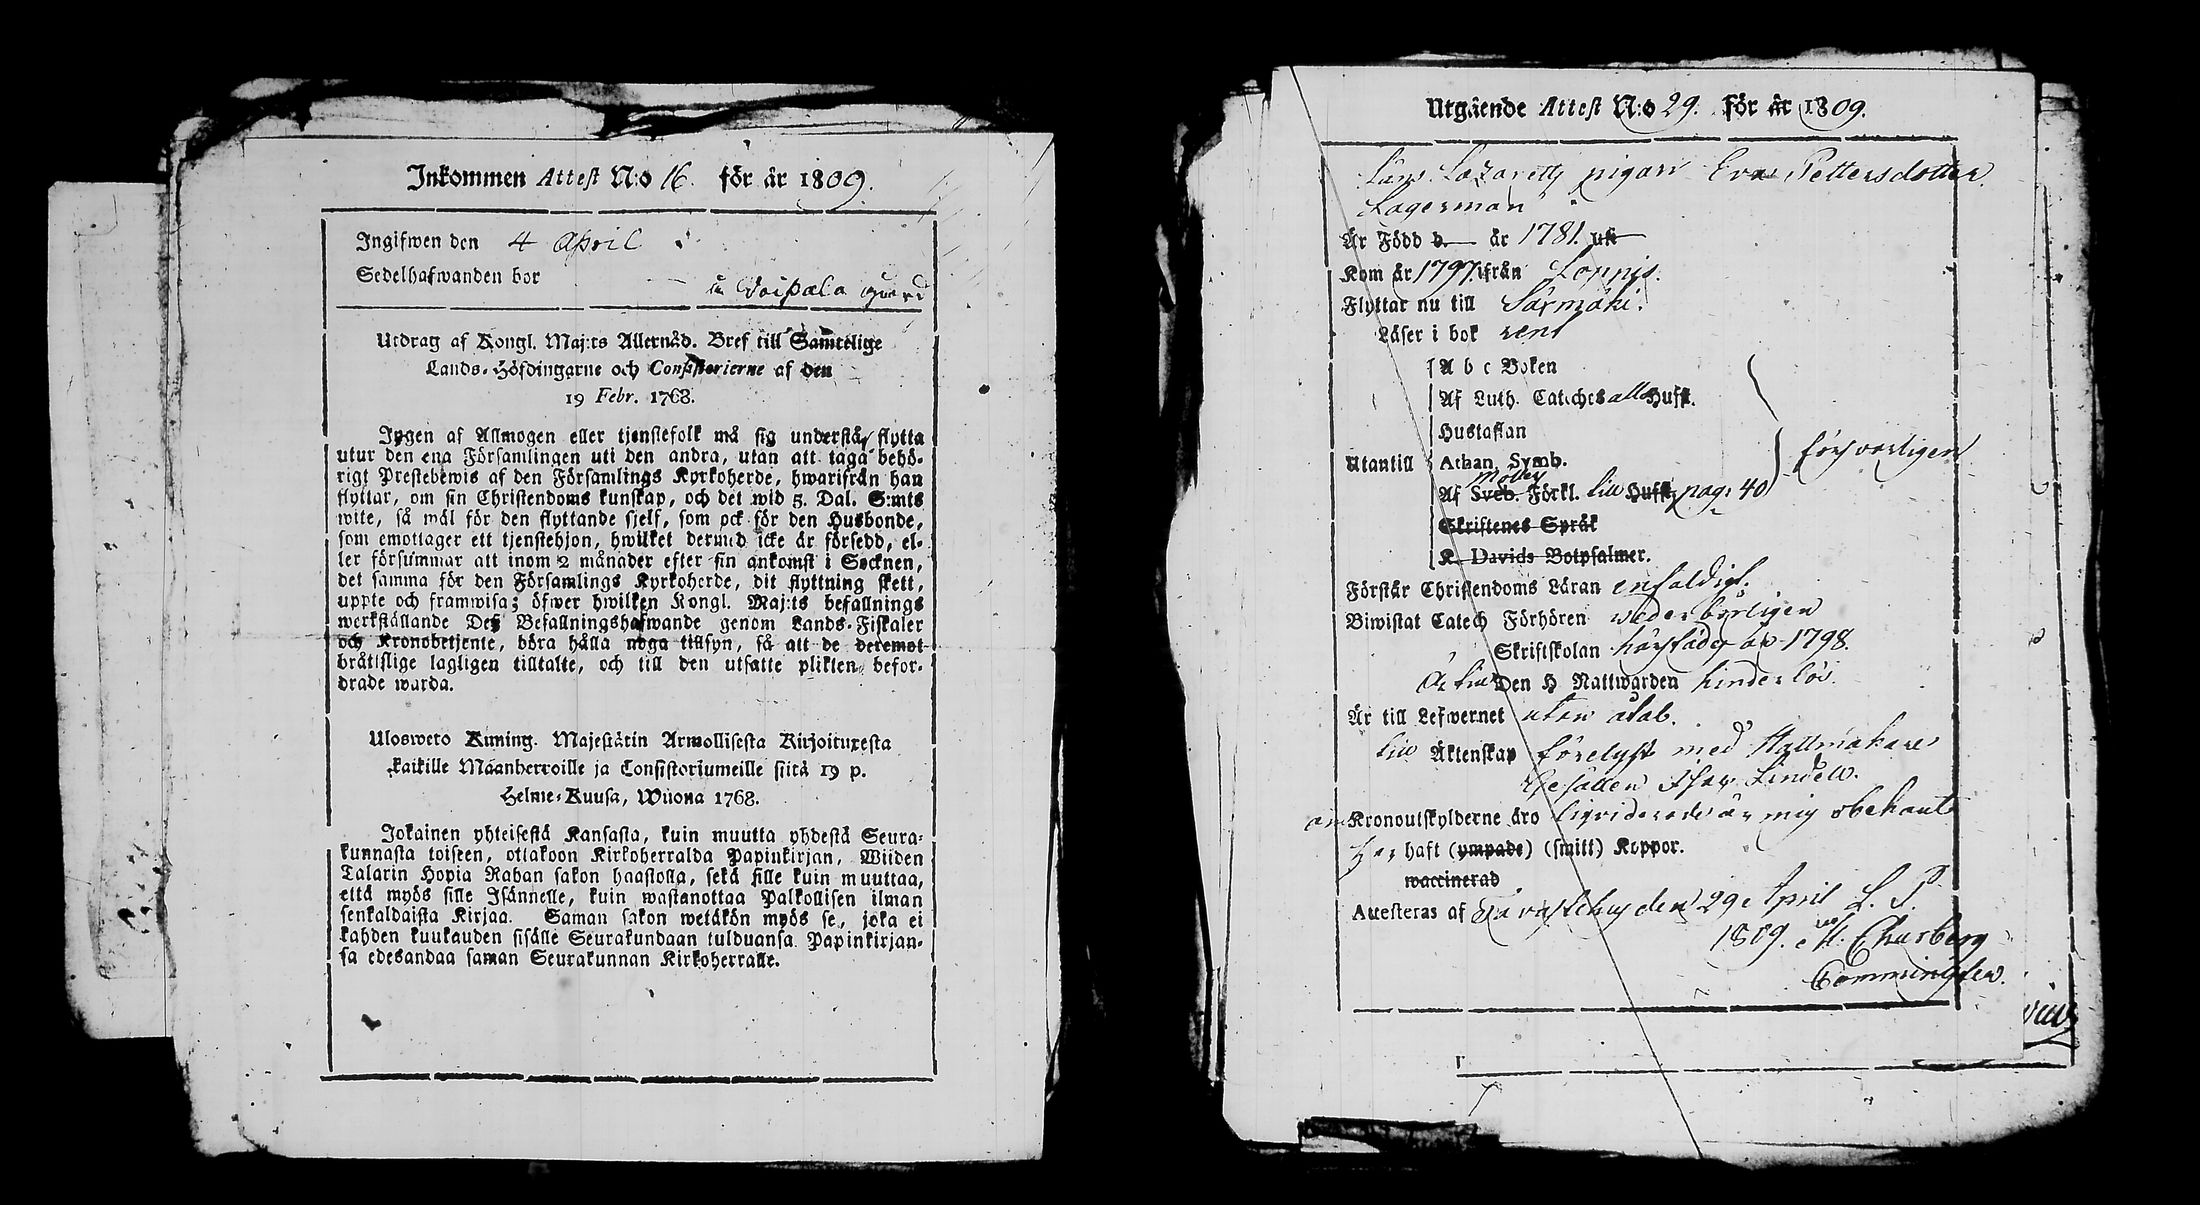 Inkommen Attest N:o 16. för år 1809.
Ingifwen den 4 April
Sedelhafwanden bor
i Woipala gård
Utdrag af Kongl. Maj:ts Allernåd. Bref till Samtelige
Lands-Höfdingarne och Consistorierne af den
19 Febr. 1768.
Ingen af Allmogen eller tjenstefolk må sig understå flytta
utur den ena Församlingen uti den andra, utan att taga behö-
rigt Prestebewis af den Församlings Kyrkoherde, hwarifrån han
flyttar, om sin Christendoms kunskap, och det wid 5. Dal. S:mts
wite, så wäl för den flyttande sjelf, som ock för den Husbonde,
som emottager ett tjenstehjon, hwilket dermed icke är försedd, el-
ler försummar att inom 2 månader efter sin ankomst i Socknen,
det samma för den Församlings Kyrkoherde, dit flyttning skett,
uppte och framwisa; öfwer hwilken Kongl. Maj:ts befallnings
werkställande Deß Befallningshafwande genom Lands-Fiskaler
och Kronobetjente, böra hålla noga tillsyn, så att de deremot
bråtslige lagligen tilltalte, och till den utsatte plikten befor-
drade warda.
Ulosweto Kuning. Majestätin Armollisesta Kirjoituxesta
kaikille Maanherroille ja Consistoriumeille siitä 19 p.
Helme-Kuusa, Wuona 1768.
Jokainen yhteisestä Kansasta, kuin muutta yhdestä Seura-
kunnasta toiseen, ottakoon Kirkoherralda Papinkirjan, Wiiden
Talarin Hopia Rahan sakon haastolla, sekä sille kuin muuttaa,
että myös sille Isännelle, kuin wastanottaa Palkollisen ilman
senkaldaista Kirjaa. Saman sakon wetäkön myös se, joka ei
kahden kuukauden sisälle Seurakundaan tulduansa Papinkirjan-
sa edesandaa saman Seurakunnan Kirkoherralle.
Utgående Attest N:o 29. för år 1809.
Läns Lazaretts pigan Eva Pettersdotter
Lagerman
Är Född d. år 1781. uti
Kom år 1797. ifrån Loppis.
Flyttar nu till Säxmäki.
Läser i bok rent
A b c Boken
Af Luth. Cateches alla Hufst.
Hustaflan
Utantill Athan. Symb. försvarligen
Af Sveb. Förkl. till Hufst. pag: 40
Skriftenes Språk
K. Davids Botpsalmer.
Förstår Christendoms Läran enfaldigt.
Biwistat Catech Förhören wederbörligen
Skriftskolan härstädes år 1798.
Är till Den H Nattwarden hinderlös.
Är till Lefwernet utan tadel.
till Äktenskap förelyst med Hattmakare
Gesällen Isac Lindell.
om Kronoutskylderne äro liqviderade är mig obekant
Har haft (ympade) (smitt) Koppor.
waccinerad
Attesteras af Tavastehus den 29 April L. P.
1809. M. Churberg
Comminister.